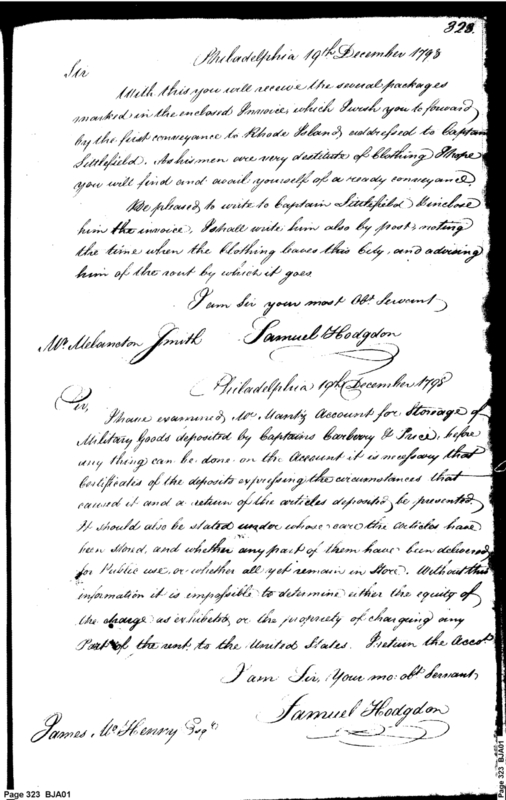 323.
Philadelphia 19th December 1798
Sir
With this you will receive the several packages
marked in the enclosed Invoice, which I wish you to forward
by the first conveyance to Rhode Island, addressed to Captain
Littlefield. As his men are very destitute of Clothing I hope
you will find and avail yourself of a ready conveyance.
Be pleased to write to Captain Littlefield & inclose
him the invoice, I shall write him also by post, noting
the time when the Clothing leaves this City, and advising
him of the rout by which it goes
I am Sir your most Obt. Servant
Mr. Melancton Smith Samuel Hodgdon
Philadelphia 19th December 1798
Sir,
I have examined Mr. Mantz Account for Storage of
Military Goods deposited by Captains Carberry & Price, before
any thing can be done on the Account it is necessary that
Certificates of the deposits expressing the circumstances that
caused it and a return of the articles deposited, be presented,
It should also be stated under whose care the articles have
been stored, and whether any part of them have been delivered
for Public use, or whether all yet remain in Store. Without this
information it is impossible to determine either the equity of
the charge as exhibited, or the propriety of charging any
Part of the rent to the United States. I return the Acct.
I am Sir, Your mo: obt. Servant
Samuel Hodgdon
James McHenry Esqr.
Page 323 BJA01
Page 323 BJA01